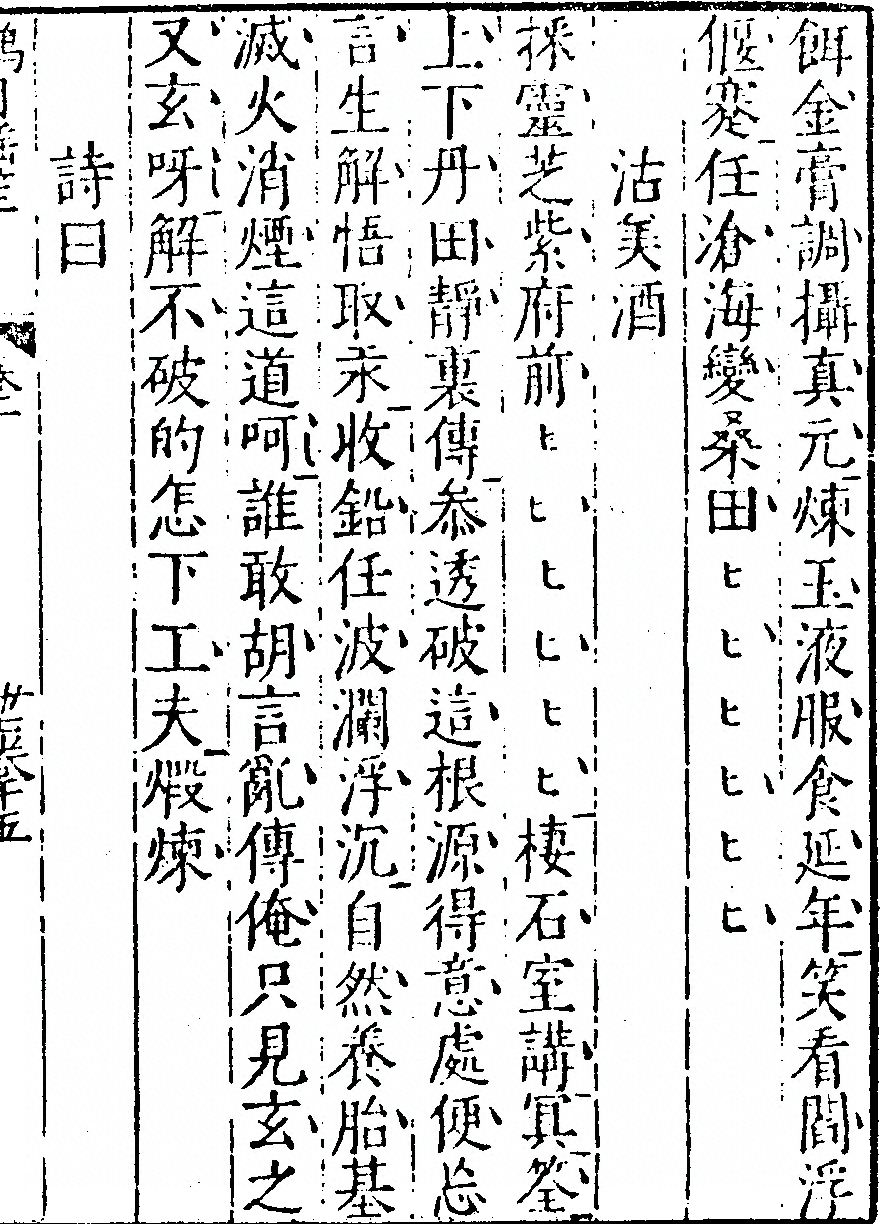 餌金膏調攝真元煉玉液服食延年笑看閻浮
偃蹇任滄海變桑田ヒヒヒヒヒヒ
沽美酒
採靈芝紫府前ヒヒヒヒヒヒ棲石室講冥筌
上下丹田靜裏傳叅透破這根源得意處便忘
言生解悟取汞收鉛任波瀾浮沉自然養胎基
滅火消煙這道呵誰敢胡言亂傳俺只見玄之
又玄呀解不破的怎下工夫煅煉
詩曰